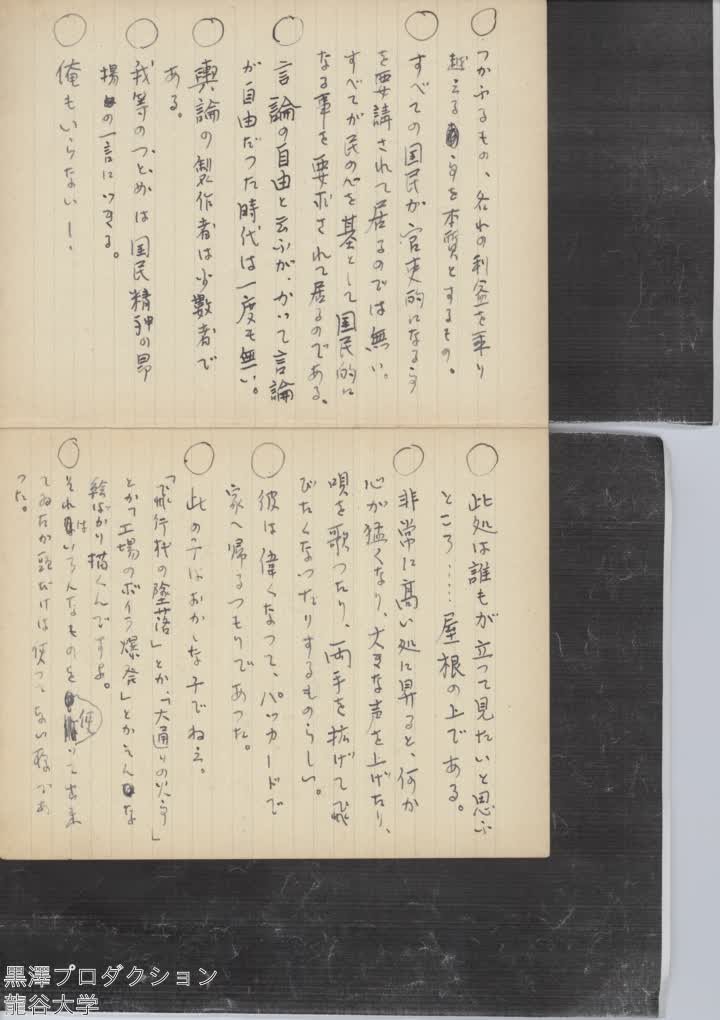 ○ つかふるもの、各れの利益を乗り
越える事を本質とするもの。
○ すべての国民が官吏的になる事
を要請されて居るのでは無い。
すべてが民の心を基として国民的に
なる事を要求されて居るのである。
○ 言論の自由と云ふが、かつて言論
が自由だつた時代は一度も無い。
○ 輿論の製作者は少数者で
ある。
○ 我等のつとめは国民精神の昂
揚の一言につきる。
○ 俺もいらない—、
○ 此処は誰もが立つて見たいと思ふ
ところ……屋根の上である。
○ 非常に高い処に昇ると、何か
心が猛くなり、大きな声を上げたり、
唄を歌つたり、両手を拡げて飛
びたくなつたりするものらしい。
○ 彼は偉くなつて、パッカードで
家へ帰るつもりであつた。
○ 此の子はおかしな子でねえ。
「飛行機の墜落」とか「大通りの火事」
とかつ工場のボイラ爆発」とかそんな
絵ばかり描くんですよ。
○ それはいろんなものを使つて出来
てゐたが頭だけは使つてない様であ
つた。
黒澤プロダクション
龍谷大学